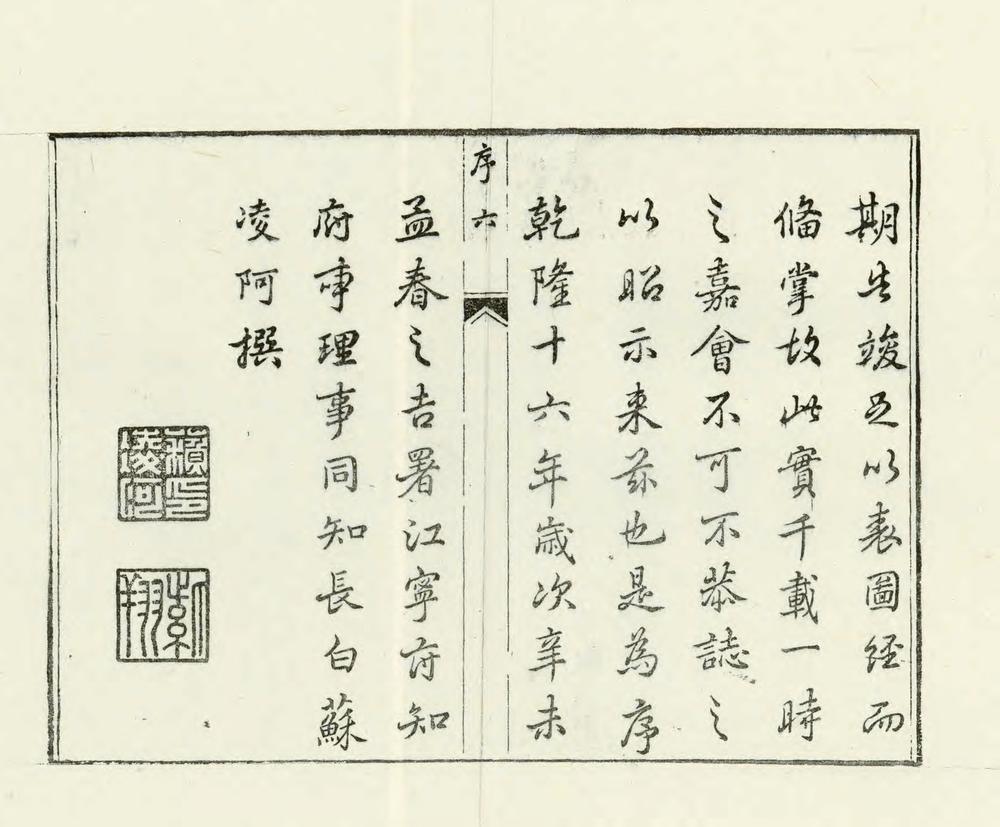 期告竣足以表圖經而
俻掌故此實千載一時
之嘉會不可不恭誌之
以昭示来茲也是為序
乾隆十六年歲次辛未
序六
孟春之吉署江寧府知
府事理事同知長白蘇
凌阿撰
蘇印凌阿
紫翔